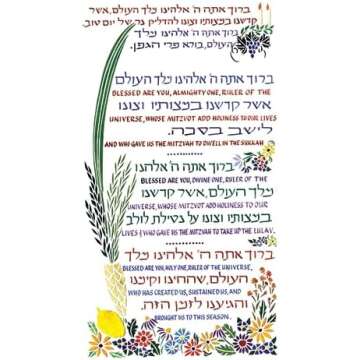 ברוך אתה ה' אלהינו מלך העולם, אשר
קדשנו במצותיו וצונו להדליק נר של יום טוב.
ברוך אתה ה' אלהינו מלך
העולם, בורא פרי הגפן.
ברוך אתה ה' אלהינו מלך העולם
BLESSED ARE YOU, ALMIGHTY ONE, RULER OF THE
אשר קדשנו במצותיו וצונו
UNIVERSE, WHOSE MITZVOT ADD HOLINESS TO OUR LIVES
לישב בסכה
AND WHO GAVE US THE MITZVAH TO DWELL IN THE SUKKAH
ברוך אתה ה' אלהינו
BLESSED ARE YOU, DIVINE ONE, RULER OF THE
מלך העולם, אשר קדשנו
UNIVERSE, WHOSE MITZVOT ADD HOLINESS TO OUR
במצותיו וצונו על נטילת לולב
LIVES & WHO GAVE US THE MITZVAH TO TAKE UP THE LULAV.
ברוך אתה ה' אלהינו מלך
BLESSED ARE YOU, HOLY ONE, RULER OF THE UNIVERSE,
העולם, שהחינו וקימנו
WHO HAS CREATED US, SUSTAINED US, AND
והגיענו לזמן הזה.
BROUGHT US TO THIS SEASON.